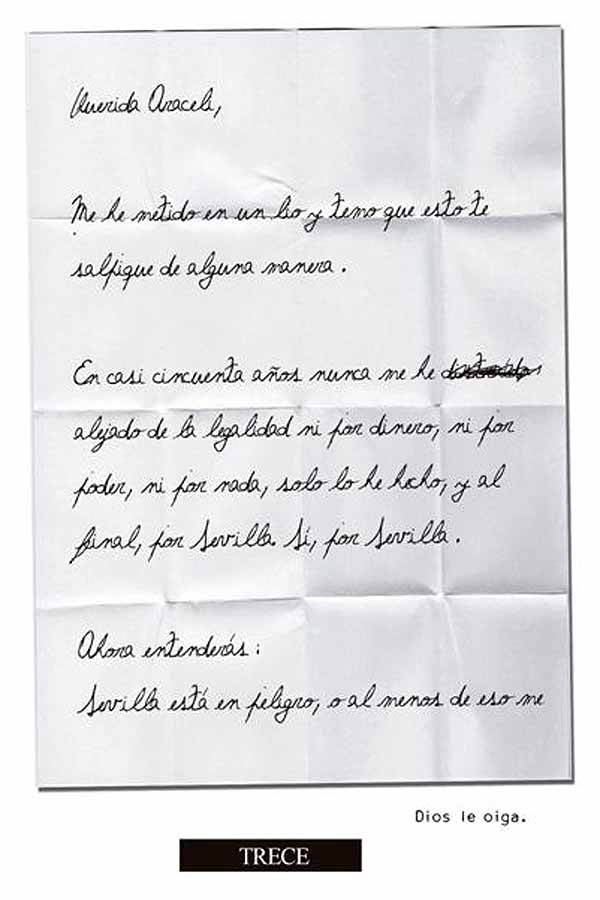 Querida Araceli,
Me he metido en un lio y temo que esto te
salpique de alguna manera.
En casi cincuenta años nunca me he
alejado de la legalidad ni por dinero, ni por
poder, ni por nada, solo lo he hecho, y al
final, por Sevilla. Sí, por Sevilla.
Ahora entenderás:
Sevilla está en peligro, o al menos de eso me
Dios le oiga.
TRECE